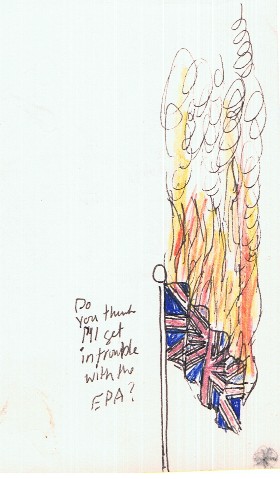 Do
you think
I'll get
in trouble
with the
EPA?